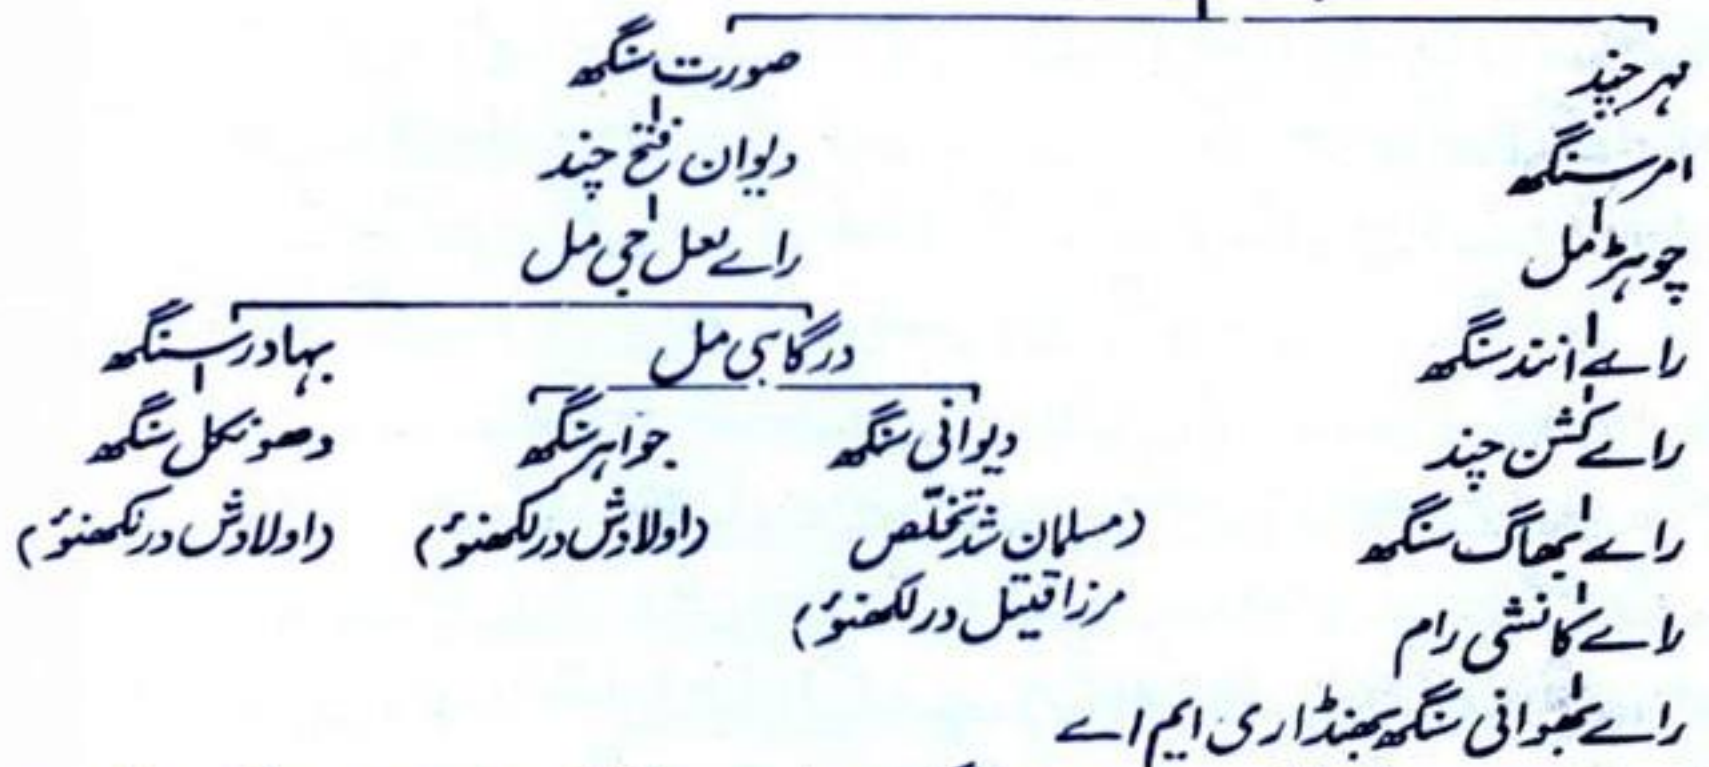 مہر چند
امر سنگھ
چوہڑ مل
راے انند سنگھ
راے کشن چند
راے بھاگ سنگھ
راے کانشی رام
راے بھوانی سنگھ بھنڈاری ایم اے
صورت سنگھ
دیوان فتح چند
راے لعل جی مل
درگاہی مل
دیوانی سنگھ
(مسلمان شد تخلّص
مرزا قتیل در لکھنوٴ)
جواہر سنگھ
(اولادش در لکھنوٴ)
بہادر سنگھ
دھونکل سنگھ
(اولادش در لکھنوٴ)